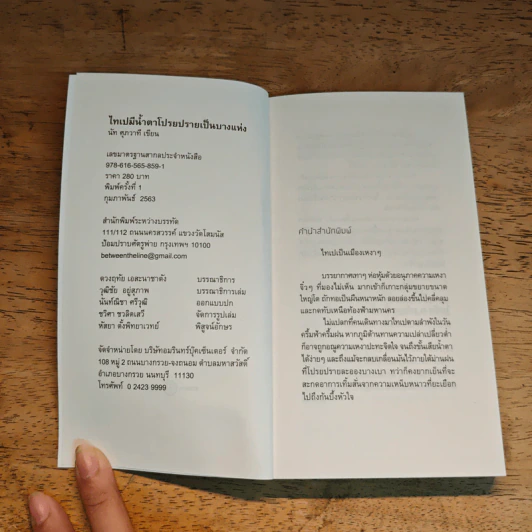 ไทเปมีน้ำตาโปรยปรายเป็นบางแห่ง
นัท ศุภวาที เขียน
เลขมาตรฐานสากลประจำหนังสือ
978-616-565-859-1
ราคา 280 บาท
พิมพ์ครั้งที่ 1
กุมภาพันธ์ 2563
สำนักพิมพ์ระหว่างบรรทัด
111/112 ถนนนครสวรรค์ แขวงวัดโสมนัส
ป้อมปราบศัตรูพ่าย กรุงเทพฯ 10100
betweentheline@gmail.com
ดวงฤทัย เอสะนาชาตัง บรรณาธิการ
วุฒิชัย อยู่สุภาพ บรรณาธิการเล่ม
นันท์ณิชา ศรีวุฒิ ออกแบบปก
ชวิศา ชวลิตเสวี จัดการรูปเล่ม
หัสยา ตั้งพิทยาเวทย์ พิสูจน์อักษร
จัดจำหน่ายโดย บริษัทอมรินทร์บุ๊คเซ็นเตอร์ จำกัด
108 หมู่ 2 ถนนบางกรวย-จงถนอม ตำบลมหาสวัสดิ์
อำเภอบางกรวย นนทบุรี 11130
โทรศัพท์ 0 2423 9999
คำนำสำนักพิมพ์
ไทเปเป็นเมืองเหงาๆ
บรรยากาศเทาๆ ห่อหุ้มด้วยอนุภาคความเหงา
จิ๋วๆ ที่มองไม่เห็น มากเข้าก็เกาะกลุ่มขยายขนาด
ใหญ่โต ถักทอเป็นผืนหนาหนัก ลอยล่องขึ้นไปคลี่คลุม
และกดทับเหนือท้องฟ้ามหานคร
ไม่แปลกที่คนเดินทางมาไทเปตามลำพังในวัน
ครึ้มฟ้าครึ้มฝน หากภูมิต้านทานความเปล่าเปลี่ยวต่ำ
ก็อาจถูกอณูความเหงาปะทะจิตใจ จนถึงขั้นเสียน้ำตา
ได้ง่ายๆ และถึงแม้จะกลบเกลื่อนมันไว้ภายใต้ม่านฝน
ที่โปรยปรายละอองบางเบา ทว่าก็คงยากเย็นที่จะ
สะกดอาการเที่มสั่นจากความเหน็บหนาวที่จะเยือก
ไปถึงก้นบึ้งหัวใจ